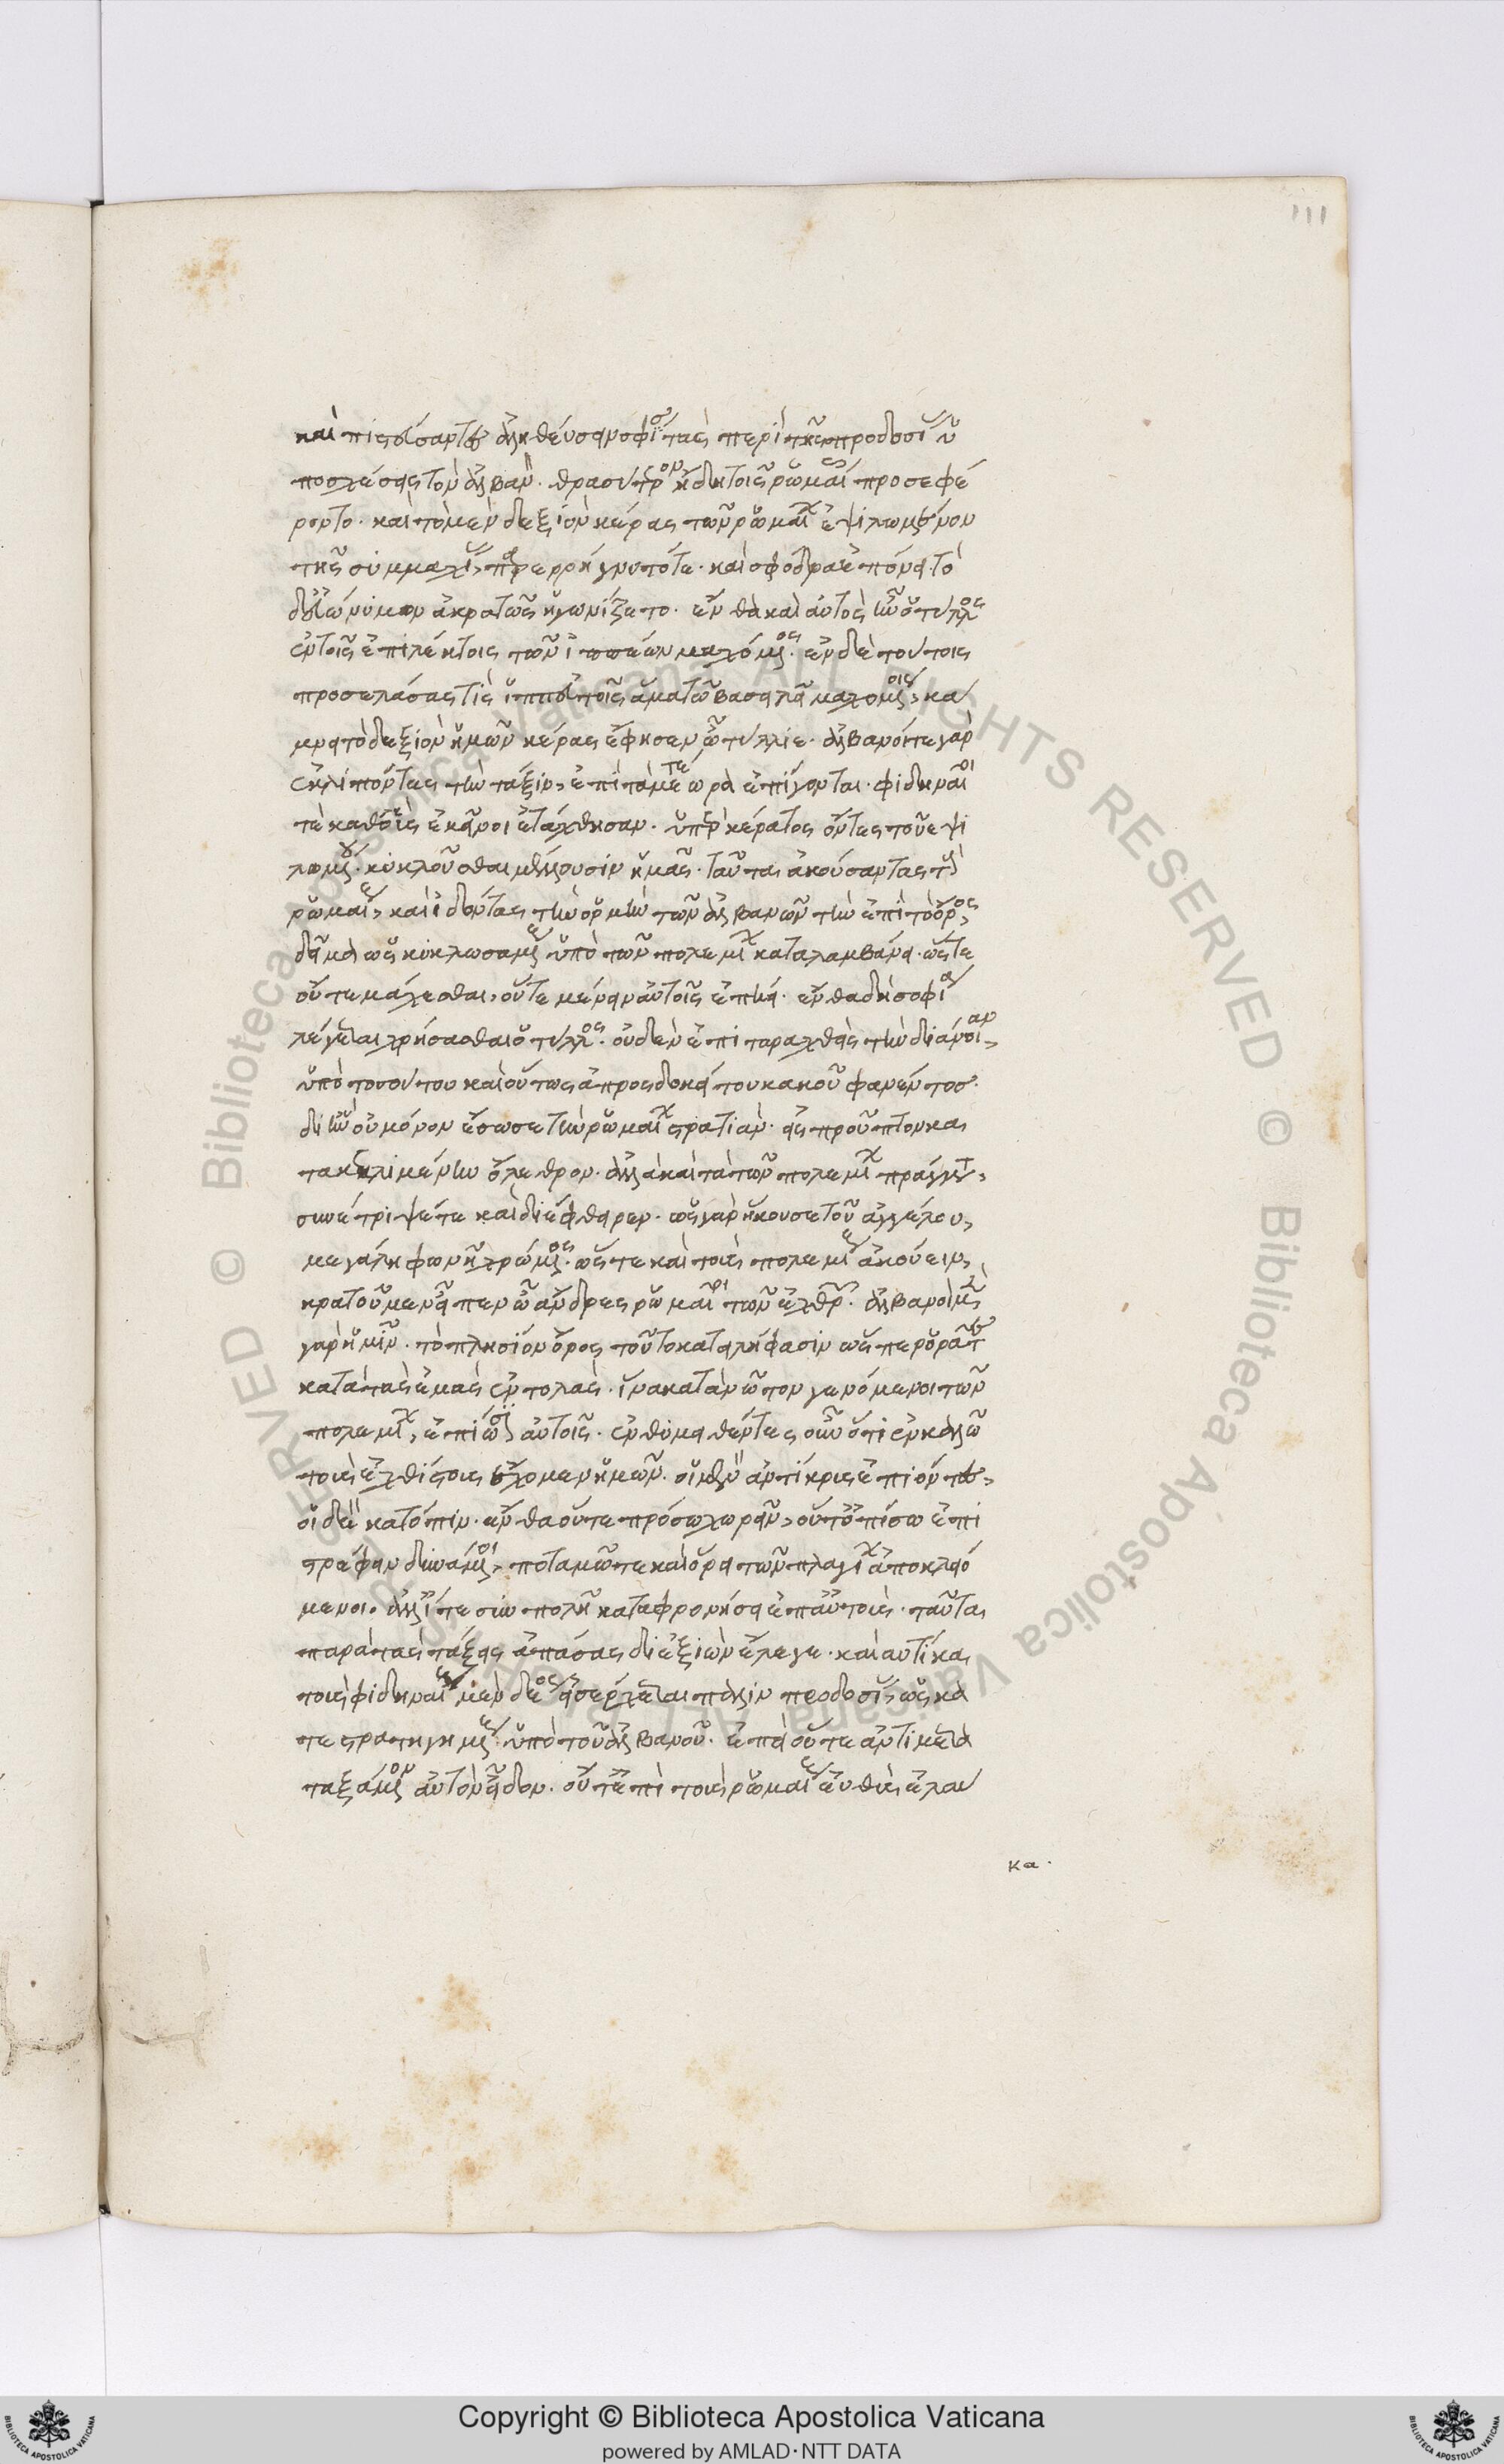 111
καὶ πιστώσαντες ἀληθεύσειν σφίσι τὰς περὶ τῆς προδοσίας ὑ
ποσχέσεις τὸν ἀλβανὸν. θρασύτερον ἤδη τοῖς ρωμαίοις προσεφέ
ροντο. καὶ τὸ μὲν δεξιὸν κέρας τῶν ρωμαίων ἐψιλωμένον
τῆς συμμαχίας παρερρήγνυτό τε. καὶ σφόδρα ἐπόνει. τὸ
δ' εὐώνυμον ἀκρατῶς ἠγωνίζετο. ἔνθα καὶ αὐτὸς ἦν ὁ τύλλος
ἐν τοῖς ἐπιλέκτοις τῶν ἱππέων μαχόμενος. ἐν δὲ τούτοις
προσελάσας τις ἵππῳ τοῖς ἅμα τῷ βασιλεῖ μαχομένοις, κά
μνει τὸ δεξιὸν ἡμῶν κέρας ἔφησεν ὦ τύλλιε. ἀλβανοί τε γὰρ
ἐκλιπόντες τὴν τάξιν, ἐπὶ τὰ μετέωρα ἐπείγονται. φιδηναῖοι
τε καθ' οὓς ἐκεῖνοι ἐτάχθησαν. ὑπὲρ κέρατος ὄντες τοῦ ἐψι
λωμένου. κυκλοῦσθαι μέλλουσιν ἡμᾶς. ταῦτα ἀκούσαντας τοὺς
ρωμαίους, καὶ ἰδόντας τὴν ὁρμὴν τῶν ἀλβανῶν τὴν ἐπὶ τὸ ὄρος,
δεῖμα ὡς κυκλωσαμένους ὑπὸ τῶν πολεμίων καταλαμβάνει. ὥστε
οὔτε μάχεσθαι, οὔτε μένειν αὐτοῖς ἐπήει. ἔνθα δὴ σοφίᾳ
λέγεται χρήσασθαι ὁ τύλλος. οὐδὲν ἐπιταραχθεὶς τὴν διάνοιαν,
ὑπὸ τοσούτου καὶ οὕτως ἀπροσδοκήτου κακοῦ φανέντος.
δι' ἣν οὐ μόνον ἔσωσε τὴν ρωμαίων στρατιὰν. εἰς προῦπτον κα
τακεκλιμένην ὄλεθρον. ἀλλὰ καὶ τὰ τῶν πολεμίων πράγματα,
συνέτριψέ τε καὶ διέφθειρεν. ὡς γὰρ ἤκουσε τοῦ ἀγγέλου,
μεγάλῃ φωνῇ χρώμενος. ὥστε καὶ τοὺς πολεμίους ἀκούειν,
κρατοῦμεν εἶπεν ὦ ἄνδρες ρωμαῖοι τῶν ἐχθρῶν. ἀλβανοὶ μὲν
γὰρ ἡμῖν. τὸ πλησίον ὄρος τοῦτο κατειλήφασιν ὥσπερ ὁρᾶτε
κατὰ τὰς ἐμὰς ἐντολὰς. ἵνα κατὰ νώτου γενόμενοι τῶν
πολεμίων, ἐπίωσι αὐτοῖς. ἐνθυμηθέντες οὖν ὅτι ἐν καλῷ
τοὺς ἐχθίστους ἔχομεν ἡμῶν. οἱ μὲν ἀντίκρυς ἐπιόντες,
οἱ δὲ κατόπιν. ἔνθα οὔτε πρόσω χωρεῖν, οὔτ' ὀπίσω ἐπι
στρέφειν δυνάμενοι, ποταμῷ τε καὶ ὄρει τῶν πλαγίων ἀποκλειό
μενοι. ἀλλ' ἴτε σὺν πολλῇ καταφρονήσει ἐπ' αὐτοὺς. ταῦτα
παρὰ τὰς τάξεις ἁπάσας διεξιὼν ἔλεγε. καὶ αὐτίκα
τοὺς φιδηναίους μὲν δέος εἰσέρχεται πάλιν προδοσίας, ὡς κα
τεστρατηγημένους ὑπὸ τοῦ ἀλβανοῦ. ἐπεὶ οὔτε ἀντιμετα
ταξάμενον αὐτὸν εἶδον. οὔτ' ἐπὶ τοὺς ρωμαίους εὐθὺς ἐλαύ
κα.
Copyright © Biblioteca Apostolica Vaticana
powered by AMLAD·NTT DATA